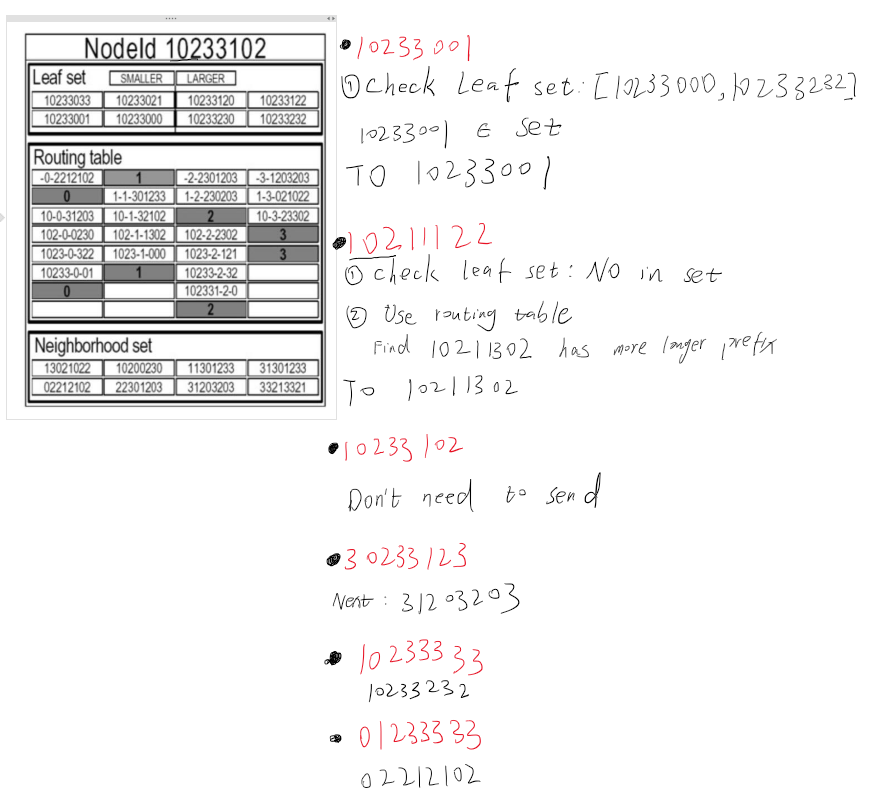 NodeId 10233102
Leaf set SMALLER LARGER
10233033 10233021 10233120 10233122
10233001 10233000 10233230 10233232
Routing table
-0-2212102 1 -2-2301203 -3-1203203
0 1-1-301233 1-2-230203 1-3-021022
10-0-31203 10-1-32102 2 10-3-23302
102-0-0230 102-1-1302 102-2-2302 3
1023-0-322 1023-1-000 1023-2-121 3
10233-0-01 1 10233-2-32
0 102331-2-0
2
Neighborhood set
13021022 10200230 11301233 31301233
02212102 22301203 31203203 33213321
10233001
① Check Leaf set: [10233000, 10233232]
10233001 ∈ set
TO 10233001
10211122
① Check leaf set: NO in set
② Use routing table
Find 10211302 has more longer prefix
To 10211302
10233102
Don't need to send
30233123
Next: 31203203
10233333
10233232
01233333
02212102